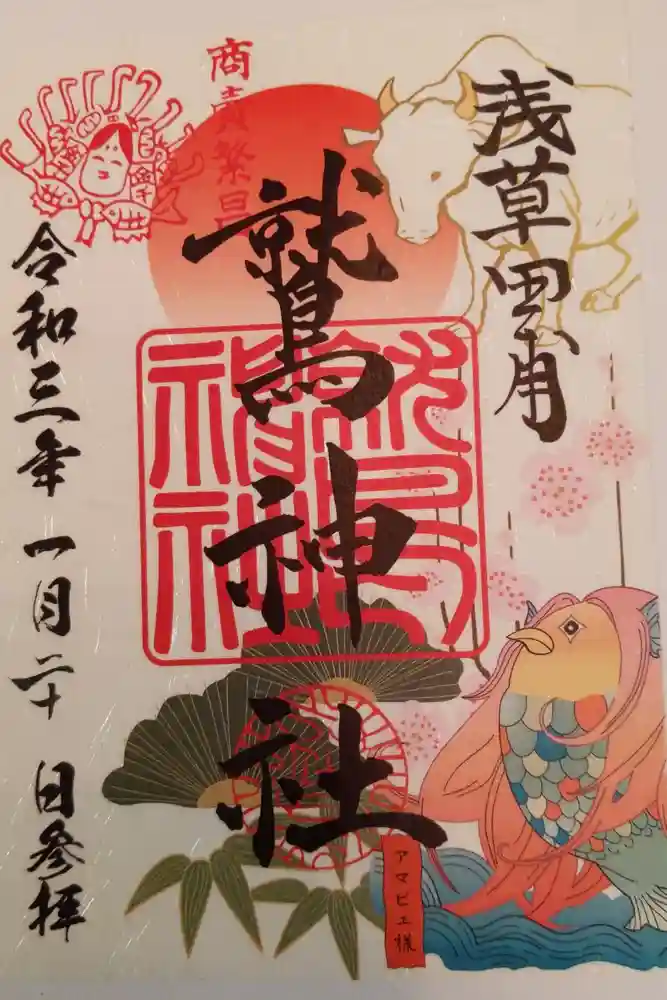 浅草田甫
商賣繁昌
鷲神社
令和三年 一月二十 日参拝
アマビエ様